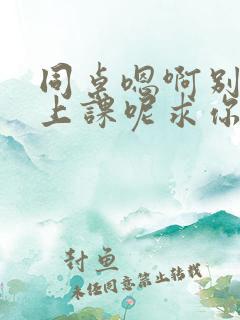 同桌嗯啊别
上課呢求你
封鱼
未经同意禁止转载